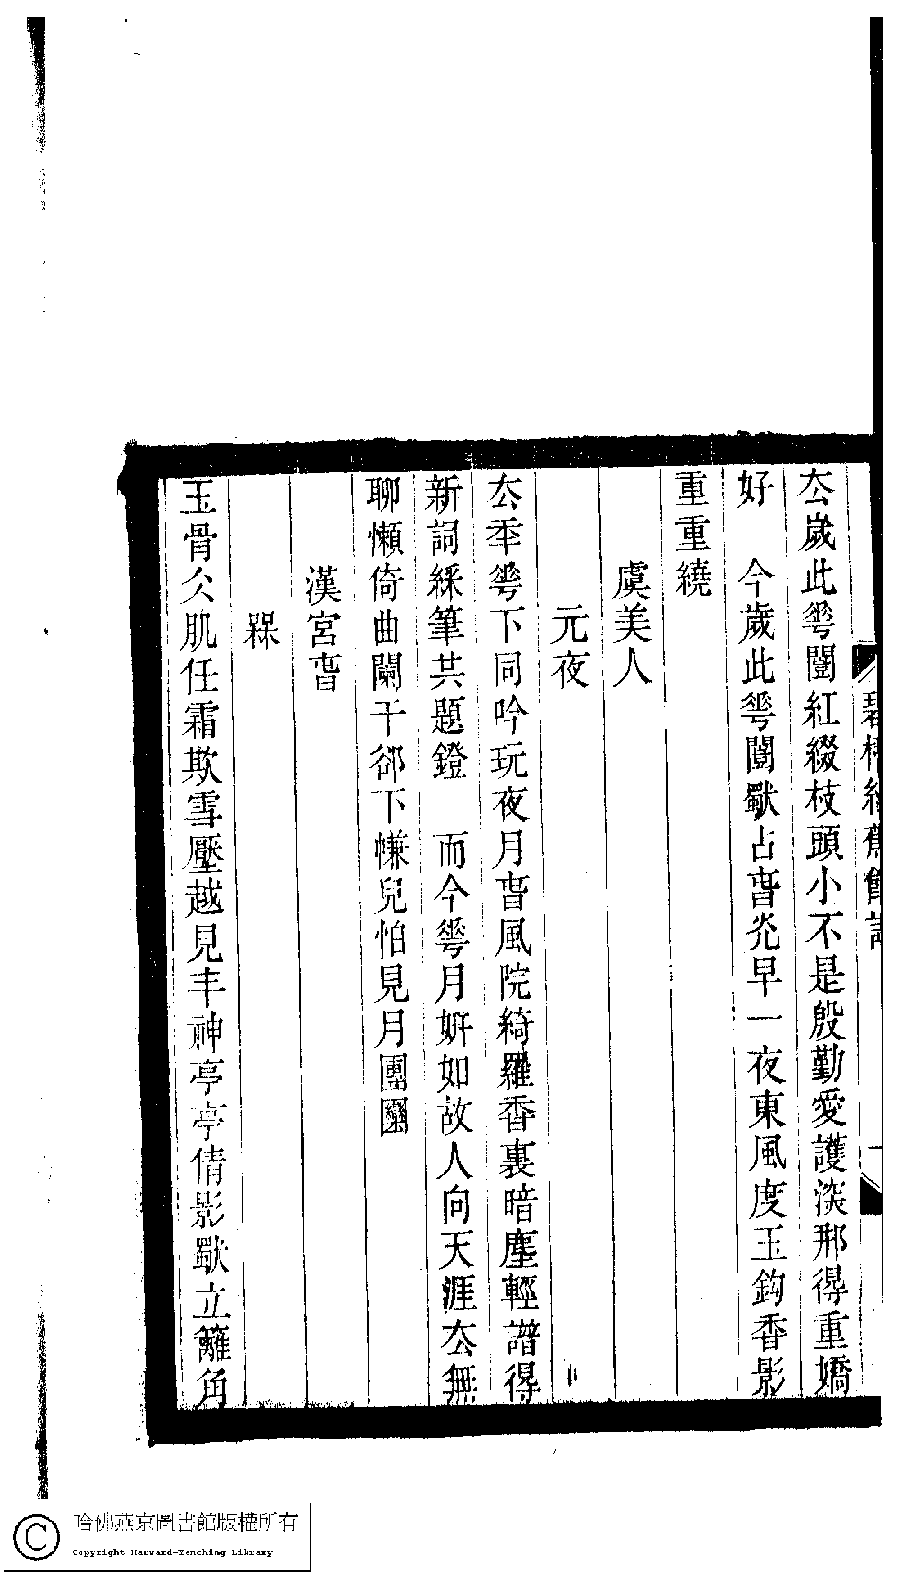 碧梧紅蕉館詞
一
厺歲此華開紅綴枝頭小不是殷勤愛護深那得重嬌
好　今歲此華開獨占旾光早一夜東風度玉鈎香影
重重繞
虞美人
元夜
厺秊華下同吟玩夜月旾風院綺羅香裏暗塵輕譜得
新詞綵筆共題鐙　而今華月姸如故人向天涯厺無
聊懶倚曲闌干郤下㡘兒怕見月團圞
漢宮旾
槑
玉骨仌肌任霜欺雪壓越見丰神亭亭倩影獨立籬角
哈佛燕京圖書館版權所有
Copyright Harvard-Yenching Library